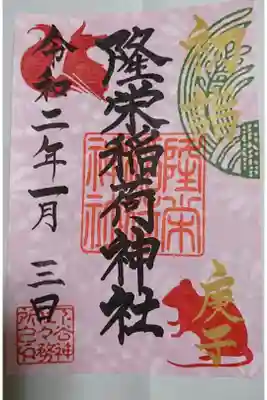 奉拝
隆栄稲荷神社
隆栄
神社
庚子
令和二年一月三日